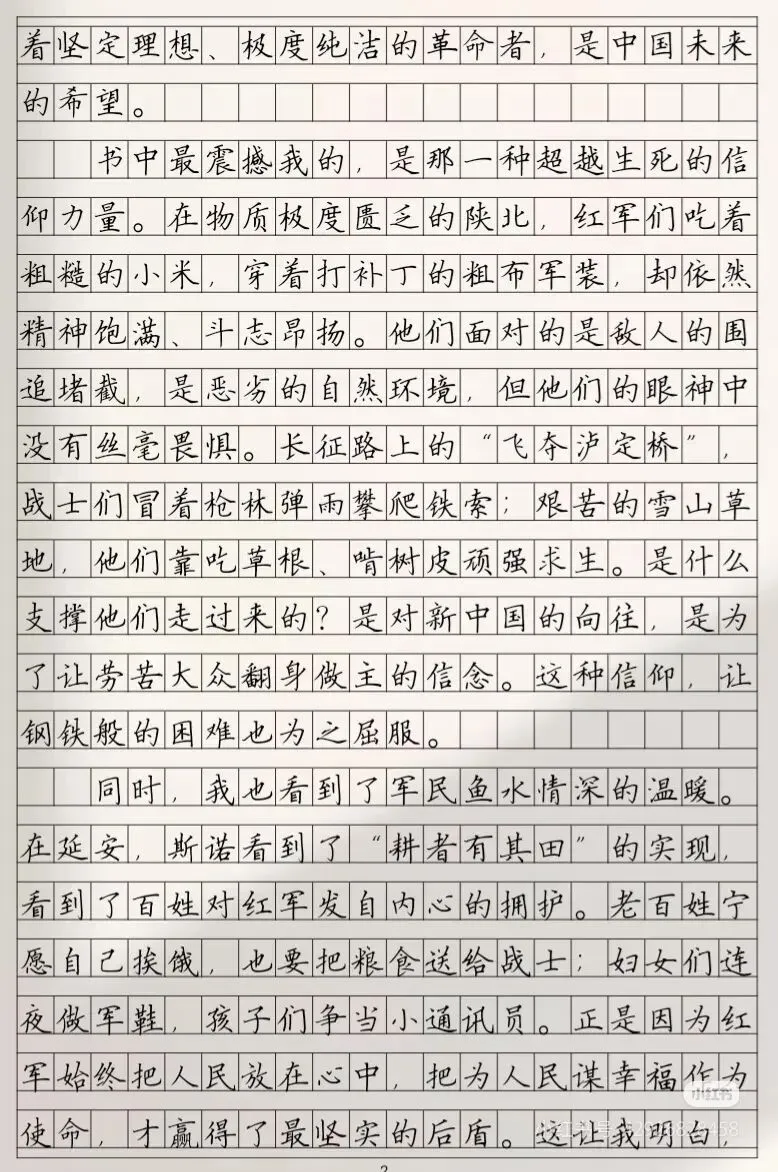 着坚定理想、极度纯洁的革命者，是中国未来
的希望。
书中最震撼我的，是那一种超越生死的信
仰力量。在物质极度匮乏的陕北，红军们吃着
粗糙的小米，穿着打补丁的粗布军装，却依然
精神饱满、斗志昂扬。他们面对的是敌人的围
追堵截，是恶劣的自然环境，但他们的眼神中
没有丝毫畏惧。长征路上的“飞夺泸定桥”，
战士们冒着枪林弹雨攀爬铁索；艰苦的雪山草
地，他们靠吃草根、啃树皮顽强求生。是什么
支撑他们走过来的？是对新中国的向往，是为
了让劳苦大众翻身做主的信念。这种信仰，让
钢铁般的困难也为之屈服。
同时，我也看到了军民鱼水情深的温暖。
在延安，斯诺看到了“耕者有其田”的实现，
看到了百姓对红军发自内心的拥护。老百姓宁
愿自己挨饿，也要把粮食送给战士；妇女们连
夜做军鞋，孩子们争当小通讯员。正是因为红
军始终把人民放在心中，把为人民谋幸福作为
使命，才赢得了最坚实的后盾。这让我明白，
小红书
2